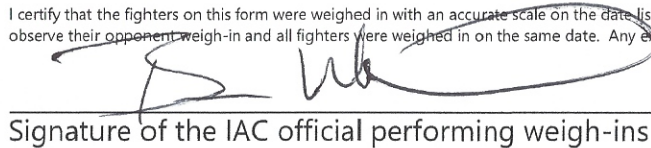 I certify that the fighters on this form were weighed in with an accurate scale on the date lis
observe their opponent weigh-in and all fighters were weighed in on the same date. Any e
Signature of the IAC official performing weigh-ins